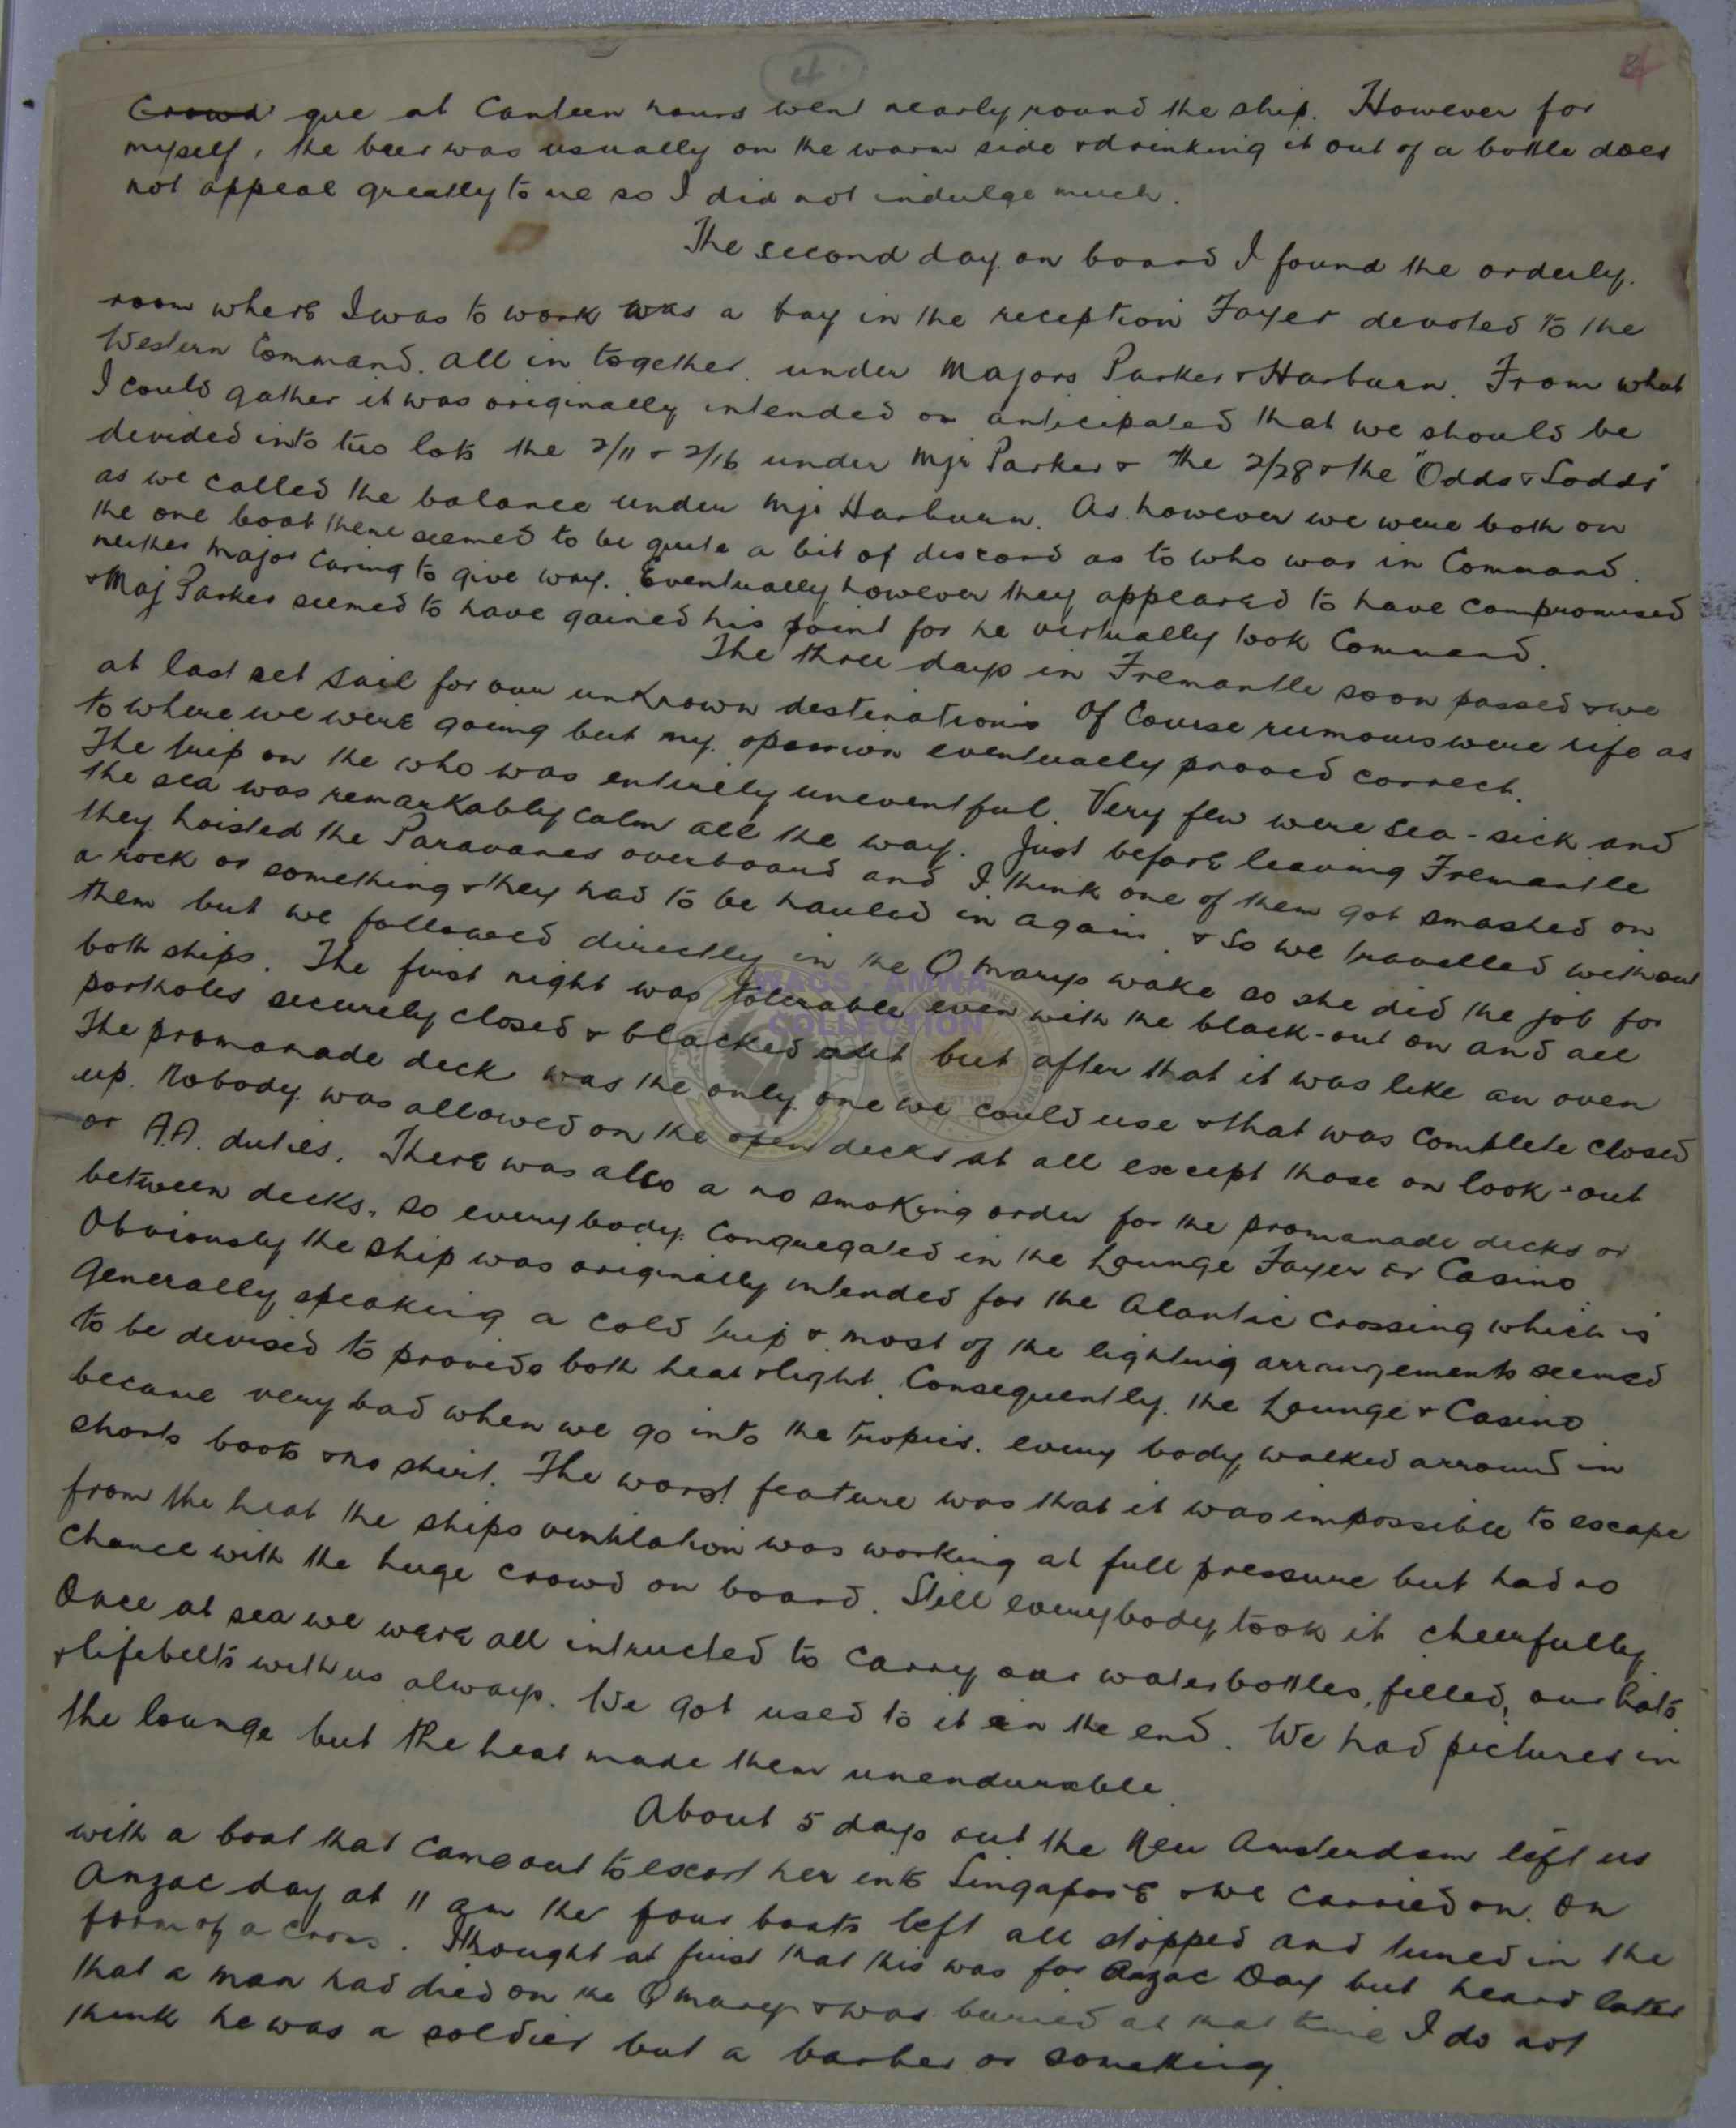 4
Crowd que at Canteen hours went nearly round the ship. However for
myself, the beer was usually on the warm side & drinking it out of a bottle does
not appeal greatly to me so I did not indulge much.
The second day on board I found the orderly
room where I was to work was a bay in the reception Foyer devoted to the
Western Command. all in together. under Majors Parker & Harburn. From what
I could gather it was originally intended or anticipated that we should be
devided into two lots the 2/11 & 2/16 under Mjr Parker & the 2/28 & the "Odds & Sodds"
as we called the balance under Mjr Harburn. As however we were both on
the one boat there seemed to be quite a bit of discord as to who was in Command.
neither Major caring to give way. Eventually however they appeared to have compromised
& Maj Parker seemed to have gained his point for he virtually took Command.
The three days in Fremantle soon passed & we
at last set sail for our unknown destination. Of Course rumours were rife as
to where we were going but my opinion eventually proved correct.
The trip on the who was entirely uneventful. Very few were sea-sick and
the sea was remarkably calm all the way. Just before leaving Fremantle
they hoisted the Paravanes overboard and I think one of them got smashed on
a rock or something & they had to be hauled in again. & So we travelled without
them but we followed directly in the Q Marys wake so she did the job for
both ships. The first night was tolerable even with the black-out on and all
portholes securely closed & blacked out but after that it was like an oven
The promanade deck was the only one we could use & that was complete closed
up. Nobody was allowed on the open decks at all except those on look-out
or A.A. duties. There was also a no smoking order for the promanade decks or
between decks. so everybody Congregated in the Lounge Foyer or Casino
Obviously the ship was originally intended for the Alantic Crossing which is
Generally speaking a cold trip & most of the lighting arrangements seemed
to be devised to provide both heat & light. Consequently. the Lounge & Casino
became very bad when we go into the tropics. every body walked arround in
shorts boots & no shirt. The worst feature was that it was impossible to escape
from the heat the ships ventilation was working at full pressure but had no
chance with the huge crowd on board. Still everybody took it cheerfully
Once at sea we were all intructed to carry our waterbottles, filled, our hats
& lifebelts with us always. We got used to it in the end. We had pictures in
the lounge but the heat made them unendurable.
About 5 days out the New Amsterdam left us
with a boat that came out to escort her into Singapore & we carried on. On
Anzac day at 11 am the four boats left all stopped and turned in the
form of a cross. I thought at first that this was for Anzac Day but heard later
that a man had died on the Q Mary & was buried at that time I do not
think he was a soldier but a barber or something.
WAGS - AMWA
COLLECTION